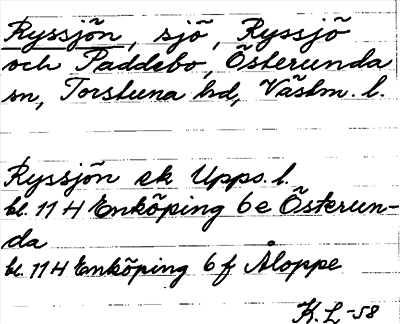 Ryssjön, sjö, Ryssjö
och Paddebo, Österunda
sn, Torstuna hd, Västm. l.
Ryssjön ek Upps. l.
bl. 11 H Enköping 6 e Österun-
da
bl. 11 H Enköping 6 f Åloppe
K. L -58